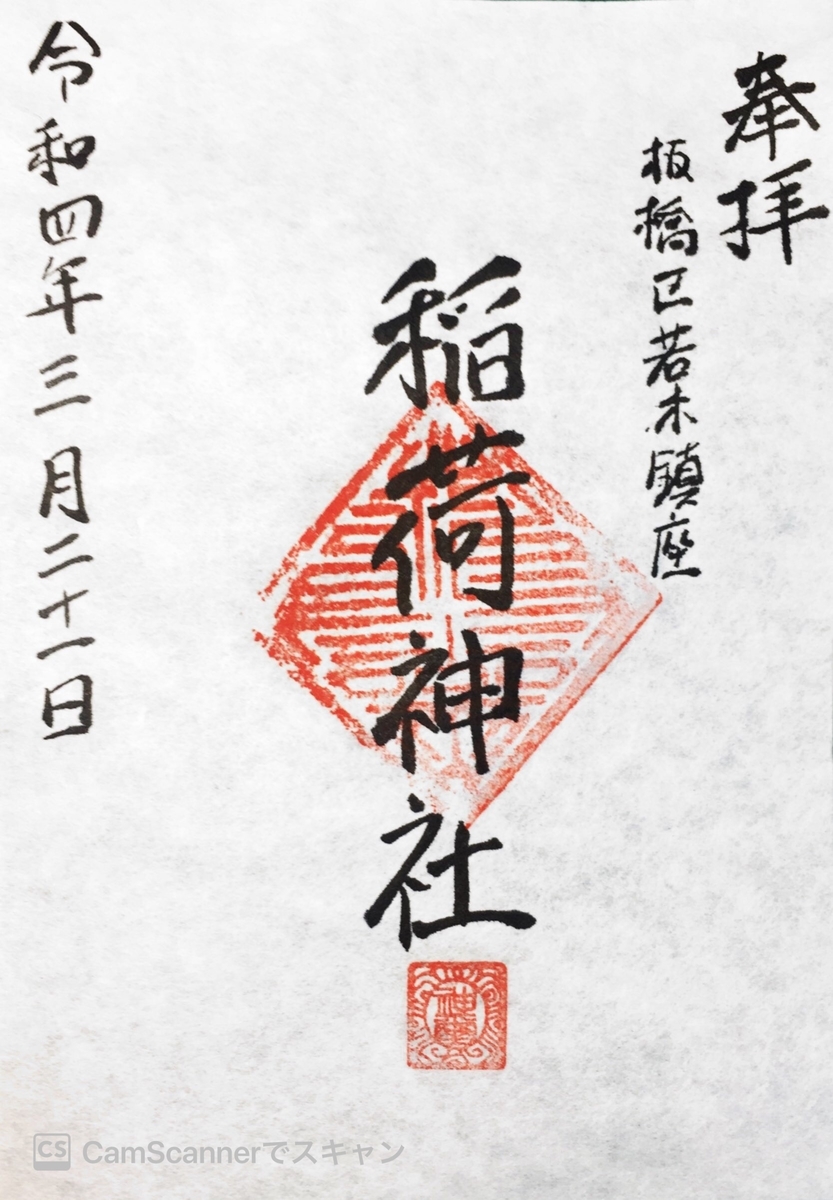 奉拝
板橋区若木鎮座
稲荷神社
令和四年三月二十一日
CS CamScannerでスキャン